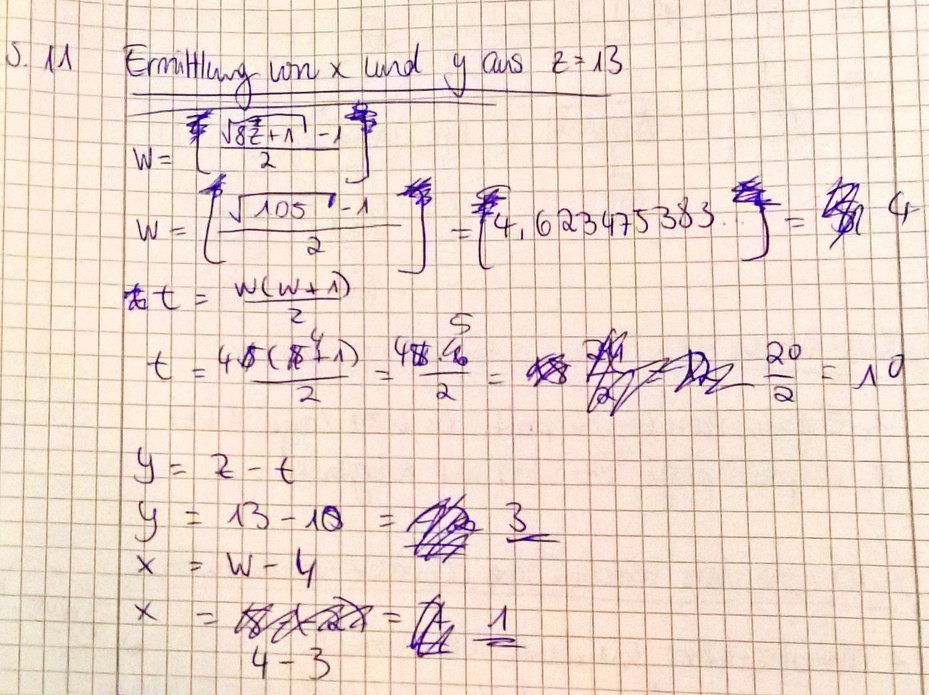 S. 11 Ermittlung von x und y aus z=13
w = ⌊(√(8z+1) - 1)/2⌋
w = ⌊(√105 - 1)/2⌋ = ⌊4,623475383...⌋ = 4
t = w(w+1)/2
t = 4(4+1)/2 = 4·5/2 = 20/2 = 10
y = z - t
y = 13 - 10 = 3
x = w - y
x = 4 - 3 = 1